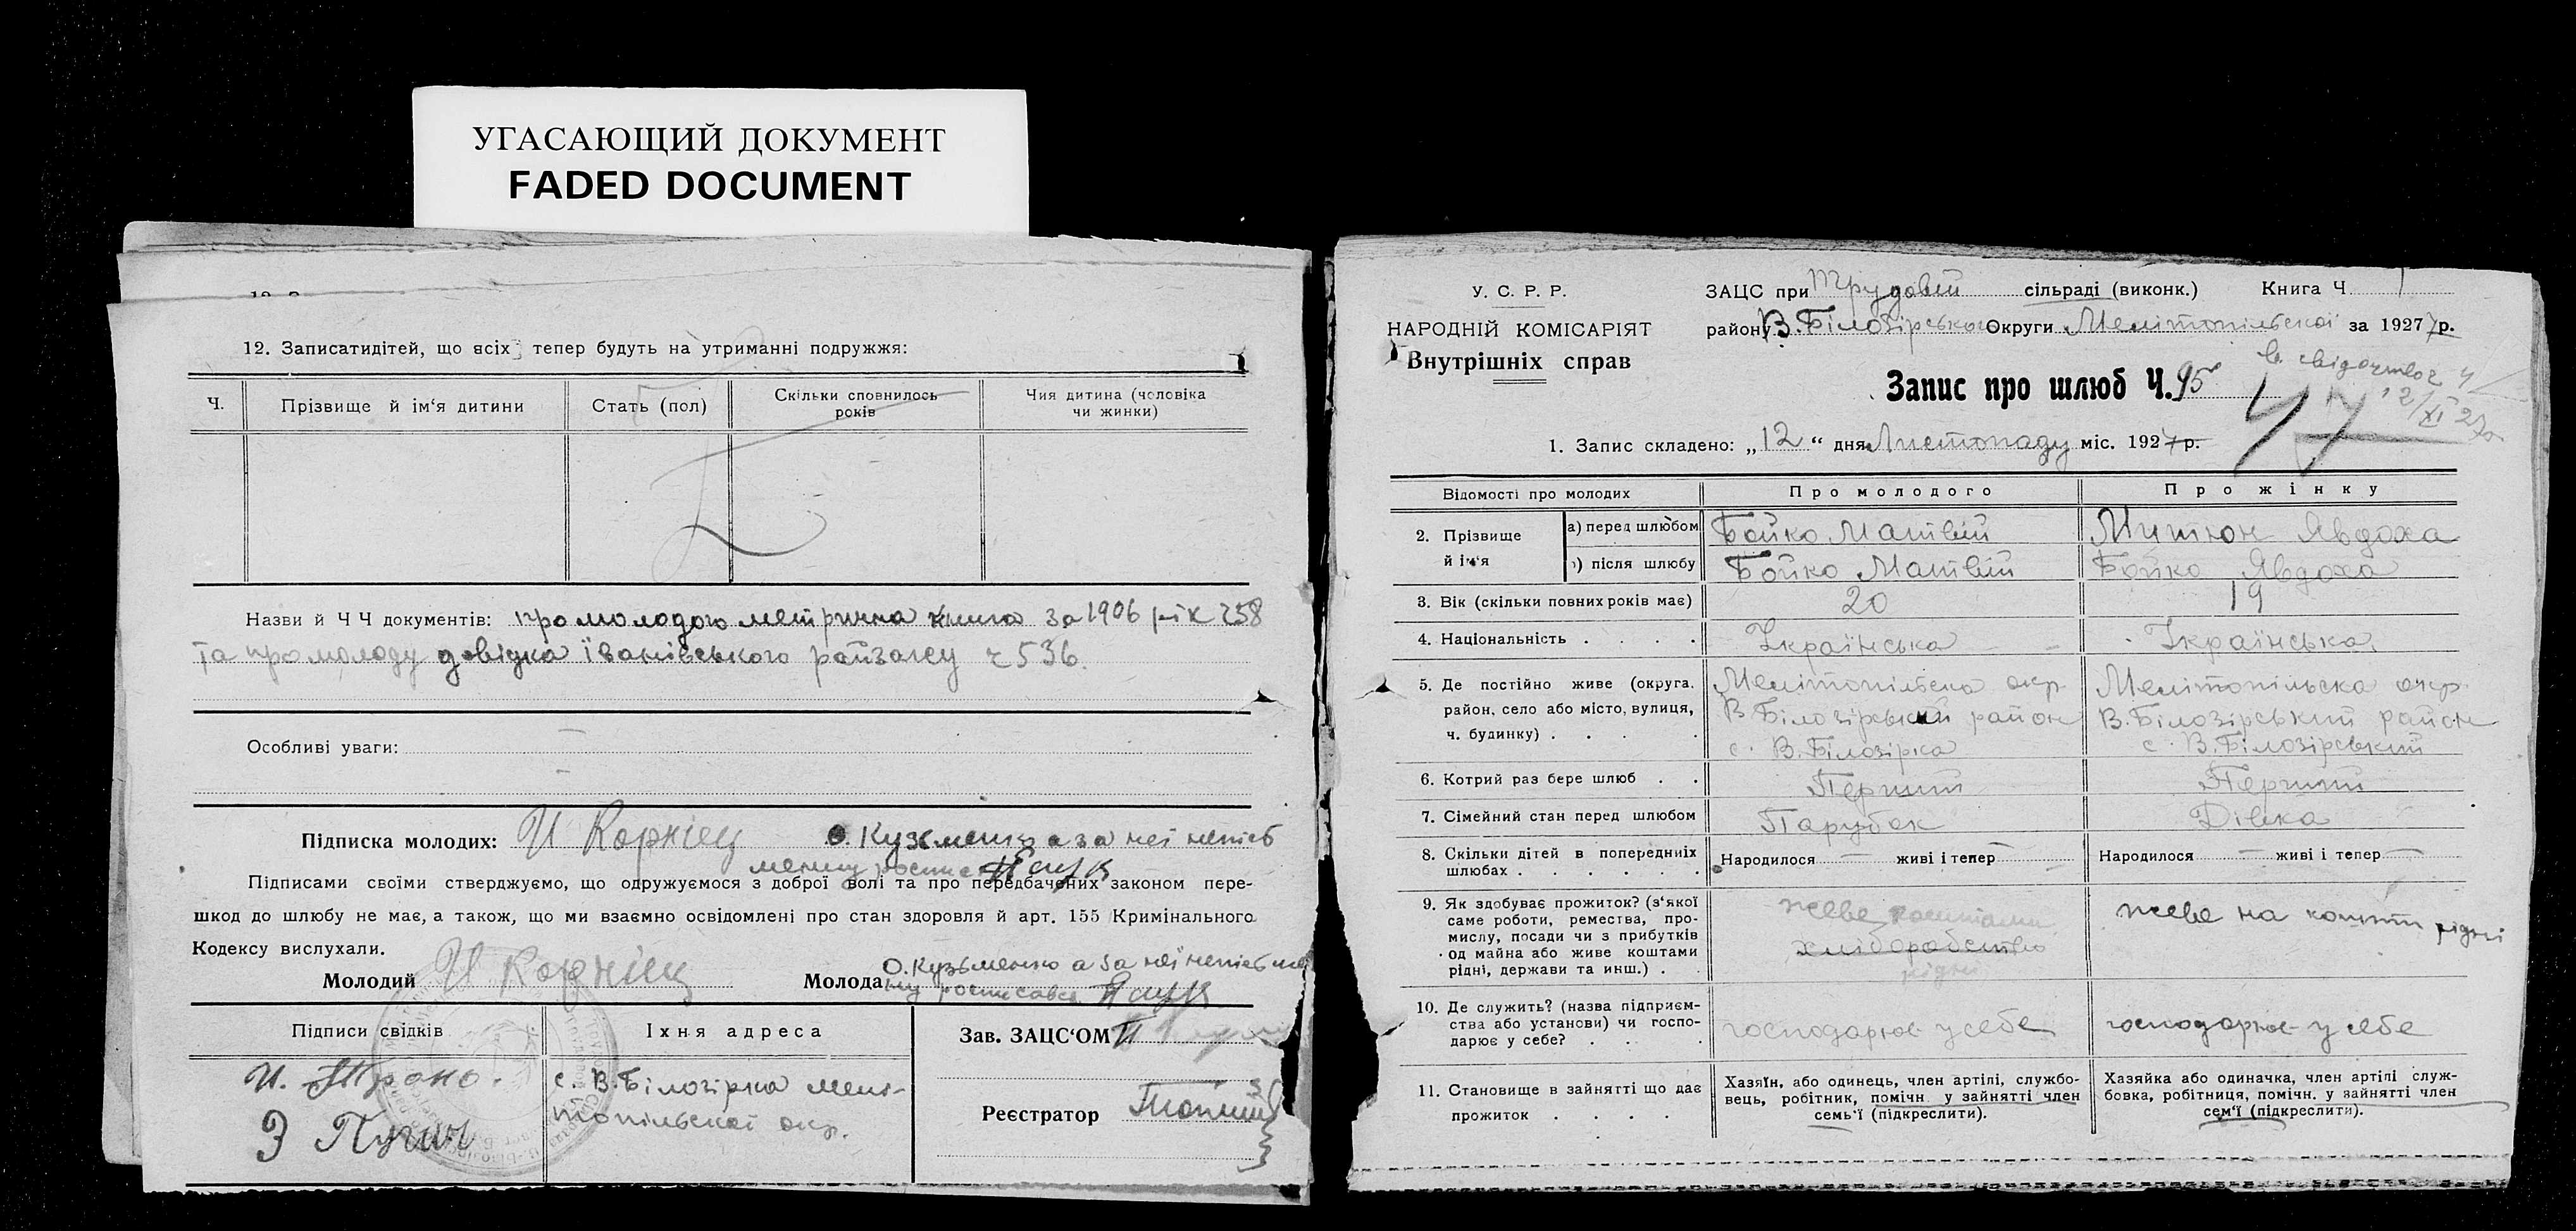 УГАСАЮЩИЙ ДОКУМЕНТ
FADED DOCUMENT
12. Записатидітей, що всіх тепер будуть на утриманні подружжя:
Ч.
Прізвище й ім'я дитини
Стать (пол)
Скільки сповнилось
років
Чия дитина (чоловіка
чи жинки)
Назви й Ч Ч документів: про молодого метрична книга за 1906 рік ч 258
та про молоду довідка Іванівського райзагсу ч 536.
Особливі уваги:
Підписка молодих: И Корнієц О. Кузьменко а за неї непісь
менну
Підписами своїми стверджуємо, що одружуємося з доброї волі та про передбачених законом пере-
шкод до шлюбу не має, а також, що ми взаємно освідомлені про стан здоровля й арт. 155 Кримінального
Кодексу вислухали.
Молодий И Корнієц Молода О. Кузьменко а за неї непісьмен
ну росписався
Підписи свідків
Їхня адреса
Зав. ЗАЦС'ОМ
с. В. Білозірка Мелі-
топільскої окр.
Реєстратор
У. С. Р. Р.
НАРОДНІЙ КОМІСАРІЯТ
Внутрішніх справ
ЗАЦС при Трудовій сільраді (виконк.) Книга Ч 1
району В. Білозірської Округи Мелітопільської за 1927 р.
Запис про шлюб Ч. 95
47
12/XI 27р
1. Запис складено: „12" дня Листопаду міс. 1927 р.
Відомості про молодих
Про молодого
Про жінку
2. Прізвище
й ім'я
а) перед шлюбом
Бойко Матвій
Митюн Явдоха
) після шлюбу
Бойко Матвій
Бойко Явдоха
3. Вік (скільки повних років має)
20
19
4. Національність
Українська
Українська
5. Де постійно живе (округа,
район, село або місто, вулиця,
ч. будинку)
Мелітопільска окр
В Білозірський район
с. В. Білозірка
Мелітопільска окр.
В. Білозірський район
с. В. Білозірський
6. Котрий раз бере шлюб
Перший
Перший
7. Сімейний стан перед шлюбом
Парубок
Дівка
8. Скільки дітей в попередніх
шлюбах
Народилося — живі і тепер —
Народилося — живі і тепер —
9. Як здобуває прожиток? (з'якої
саме роботи, ремества, про-
мислу, посади чи з прибутків
од майна або живе коштами
рідні, держави та инш.)
живе коштами
хліборобство
рідні
живе на кошти рідні
10. Де служить? (назва підприєм-
ства або установи) чи госпо-
дарює у себе?
господарює у себе
господарює у себе
11. Становище в зайнятті що дає
прожиток
Хазяїн, або одинець, член артілі, службо-
вець, робітник, помічн. у зайнятті член
семь'ї (підкреслити).
Хазяйка або одиначка, член артілі служ-
бовка, робітниця, помічн. у зайнятті член
сем'ї (підкреслити).